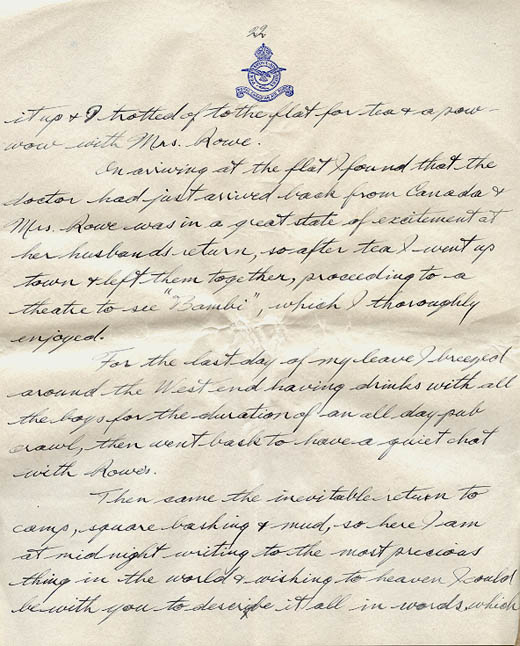 22
it up & I trotted of to the flat for tea & a pow-
wow with Mrs. Rowe.
On ariving at the flat I found that the
doctor had just arived back from Canada &
Mrs. Rowe was in a great state of excitement at
her husbands return, so after tea I went up
town & left them together, proceeding to a
theatre to see "Bambi", which I thoroughly
enjoyed.
For the last day of my leave I breezed
around the West end having drinks with all
the boys for the duration of an all day pub
crawl, then went back to have a quiet chat
with Rowes.
Then came the inevitable return to
camp, square bashing & mud, so here I am
at mid night writing to the most precious
thing in the world & wishing to heaven I could
be with you to describe it all in words, which